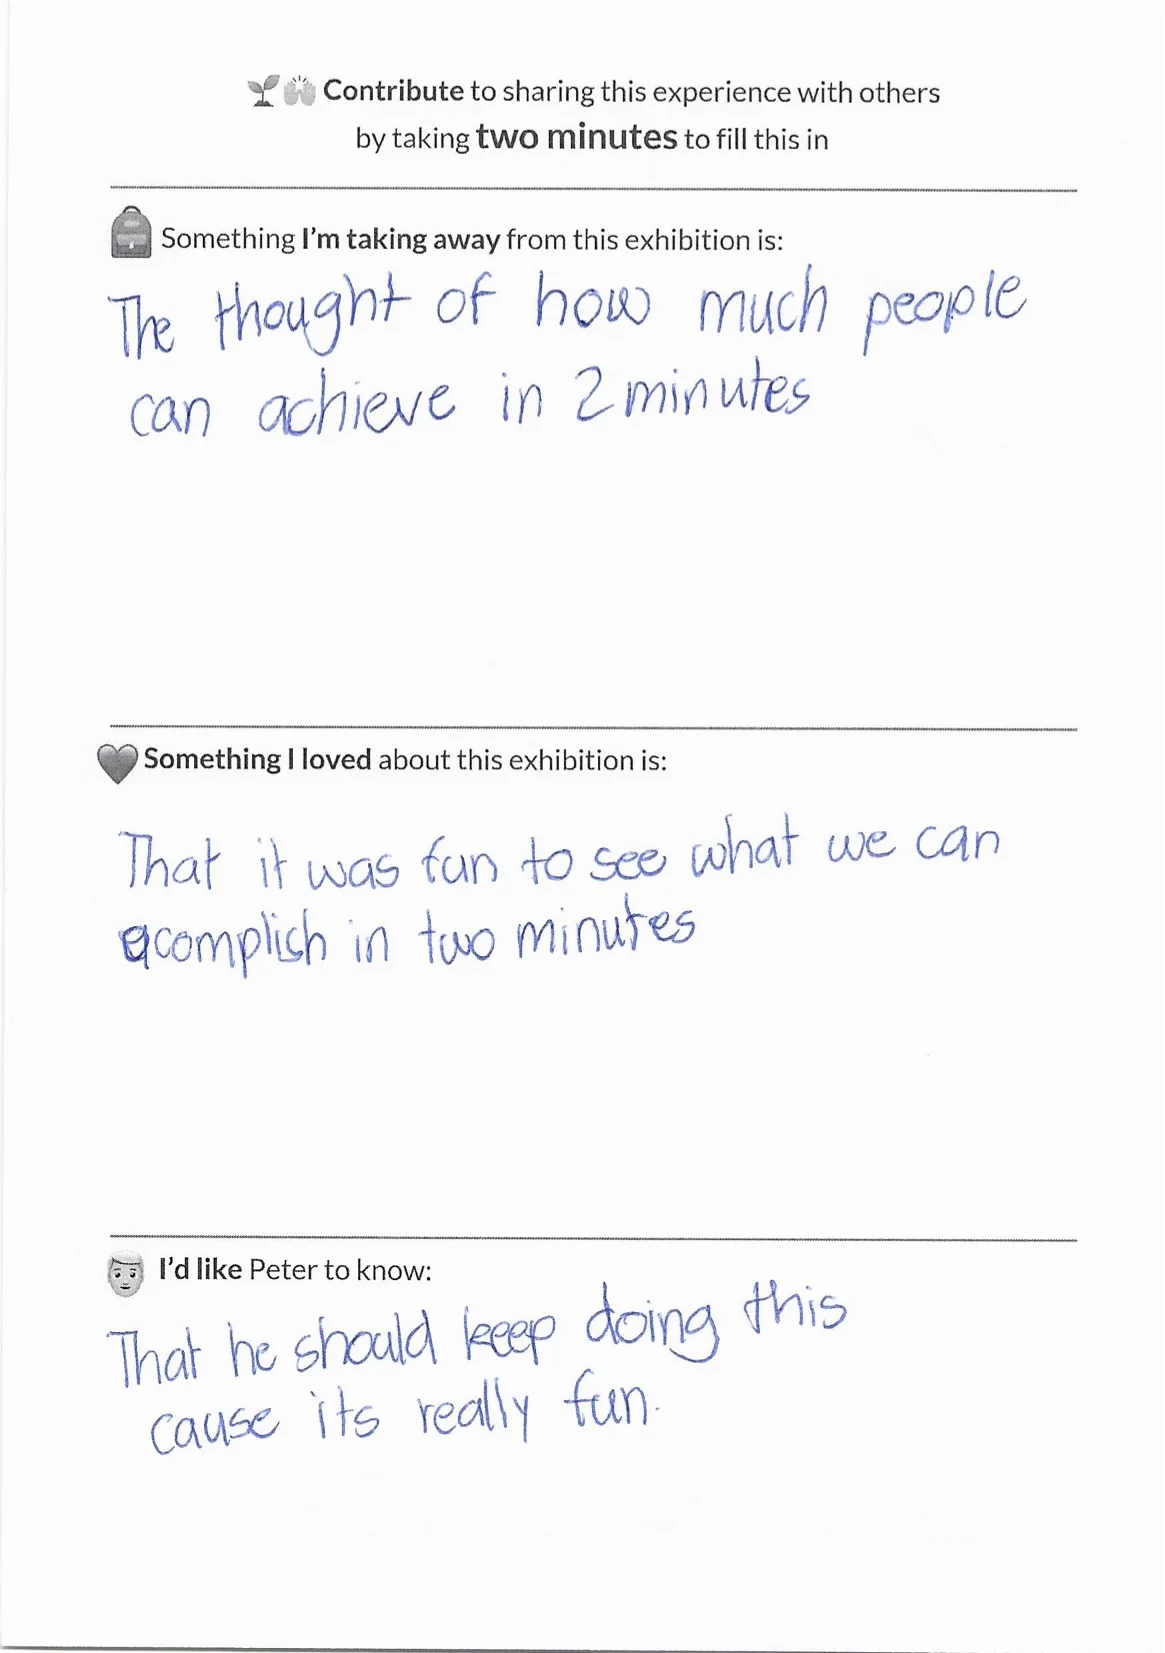 Contribute to sharing this experience with others
by taking two minutes to fill this in
Something I'm taking away from this exhibition is:
The thought of how much people
can achieve in 2 minutes
Something I loved about this exhibition is:
That it was fun to see what we can
acomplish in two minutes
I'd like Peter to know:
That he should keep doing this
cause its really fun.